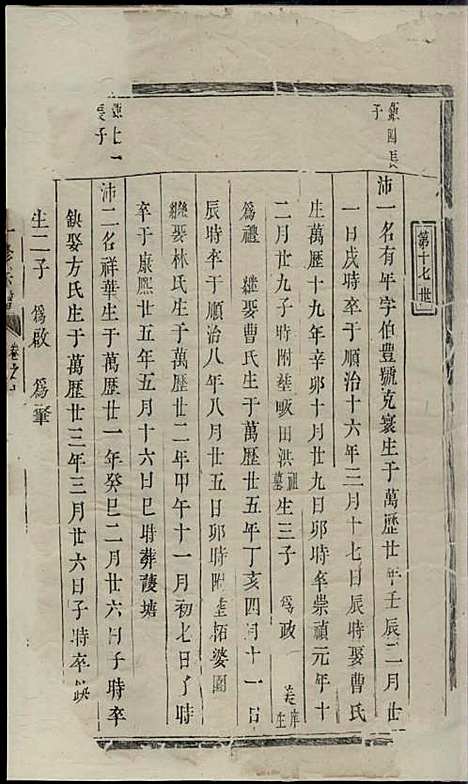 第十七世
鎮國長子
沛一名有年字伯豊號克寰生于萬歷廿年壬辰二月廿
一日戌時卒于順治十六年三月十七日辰時娶曹氏
生萬歷十九年辛卯十月廿九日卯時卒崇禎元年十
二月廿九子時附葬畈田洪祖墓生三子 為政 美庠生
為禮 繼娶曹氏生于萬歷廿五年丁亥四月十一日
辰時卒于順治八年八月廿五日卯時附葬栢婆園
繼娶林氏生于萬歷廿二年甲午十一月初七日丁時
卒于康熙廿五年五月十六日巳時葬菱塘
鎮七一長子
沛二名祥華生于萬歷廿一年癸巳二月廿六日子時卒
缺娶方氏生于萬歷廿三年三月廿六日子時卒缺
生二子 為啟 為肇
卷之